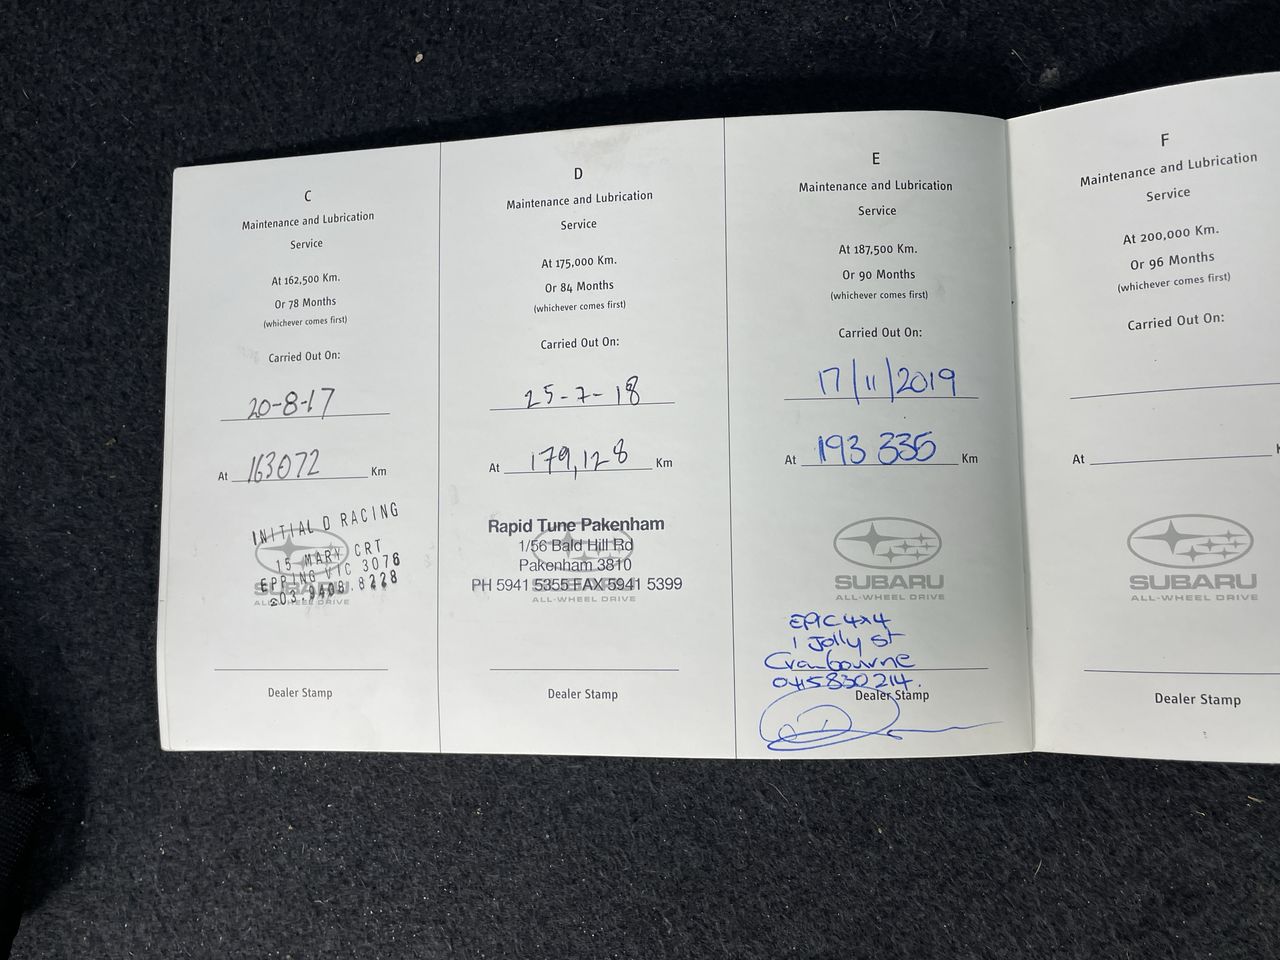 C
Maintenance and Lubrication
Service
At 162,500 Km.
Or 78 Months
(whichever comes first)
Carried Out On:
20-8-17
At 163072 Km
INITIAL D RACING
15 MARY CRT
EPPING VIC 3076
03.9408.8228
SUBARU
ALL-WHEEL DRIVE
Dealer Stamp
D
Maintenance and Lubrication
Service
At 175,000 Km.
Or 84 Months
(whichever comes first)
Carried Out On:
25-7-18
At 179,128 Km
Rapid Tune Pakenham
1/56 Bald Hill Rd
Pakenham 3810
PH 5941 5355 FAX 5941 5399
SUBARU
ALL-WHEEL DRIVE
Dealer Stamp
E
Maintenance and Lubrication
Service
At 187,500 Km.
Or 90 Months
(whichever comes first)
Carried Out On:
17/11/2019
At 193 335 Km
SUBARU
ALL-WHEEL DRIVE
EPIC 4x4
1 Jolly st
Cranbourne
0415830214.
Dealer Stamp
F
Maintenance and Lubrication
Service
At 200,000 Km.
Or 96 Months
(whichever comes first)
Carried Out On:
At
SUBARU
ALL-WHEEL DRIVE
Dealer Stamp